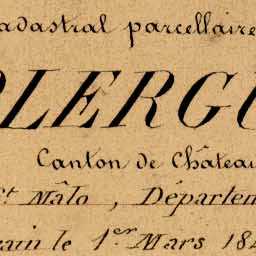 adastral parcellaire
OLERGU
Canton de Château
St Mâlo, Départem
rain le 1er Mars 184